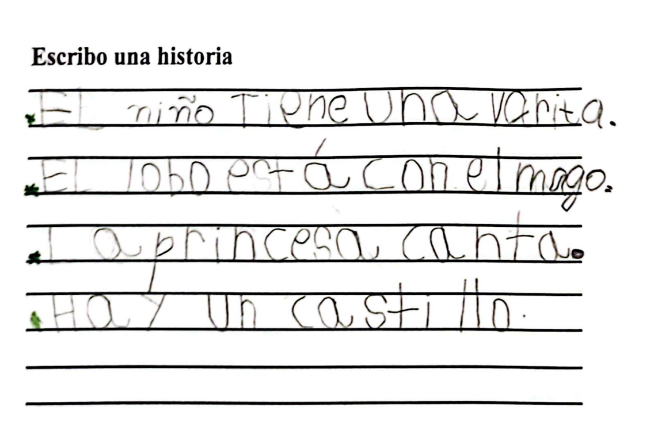 Escribo una historia
* El niño Tiene una varita.
* El lobo está con el mago.
* La princesa canta.
* Hay un castillo.